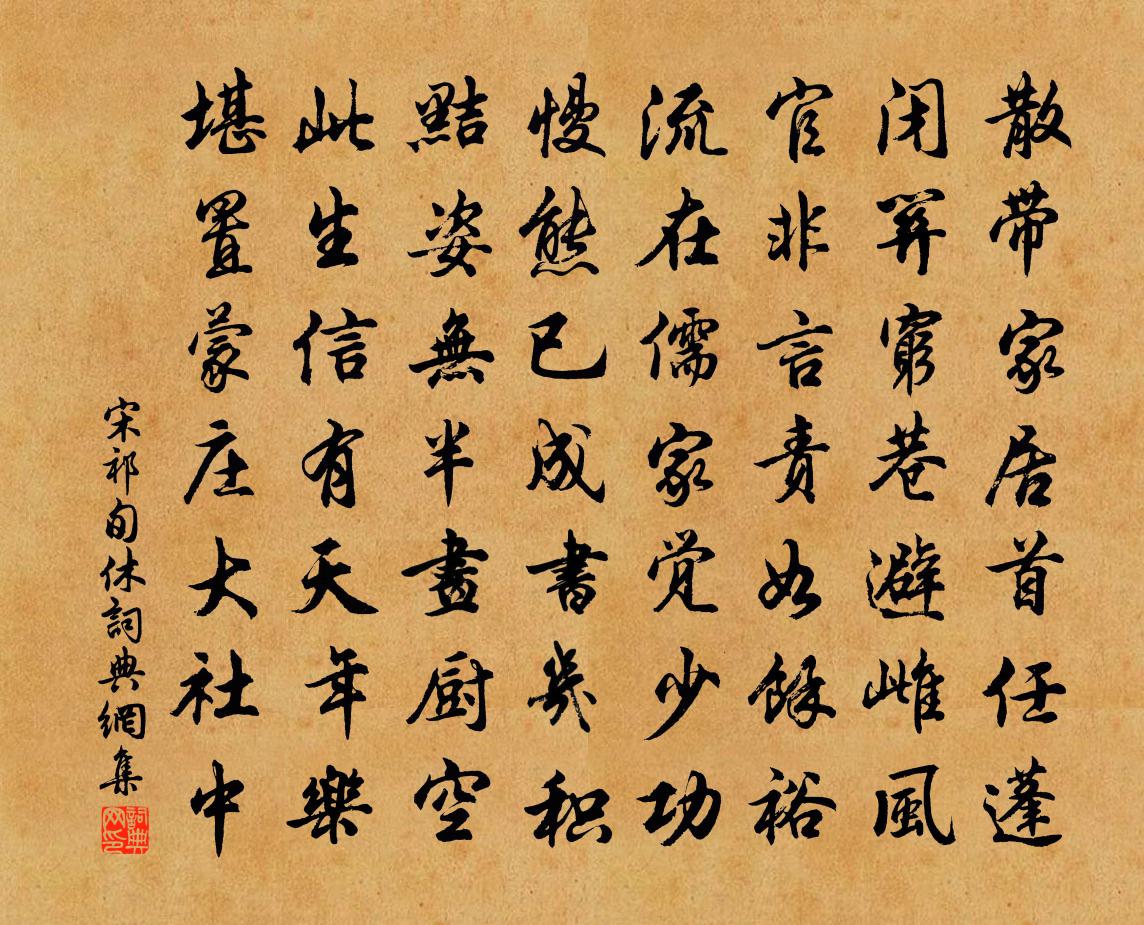 散带家居首任蓬
闭关窮巷避雌風
官非言责如餘裕
流在儒家觉少功
慢態已成書幾积
黠姿無半畫厨空
此生信有天年樂
堪置蒙庄大社中
宋祁旬休詞典網集
詞典网印